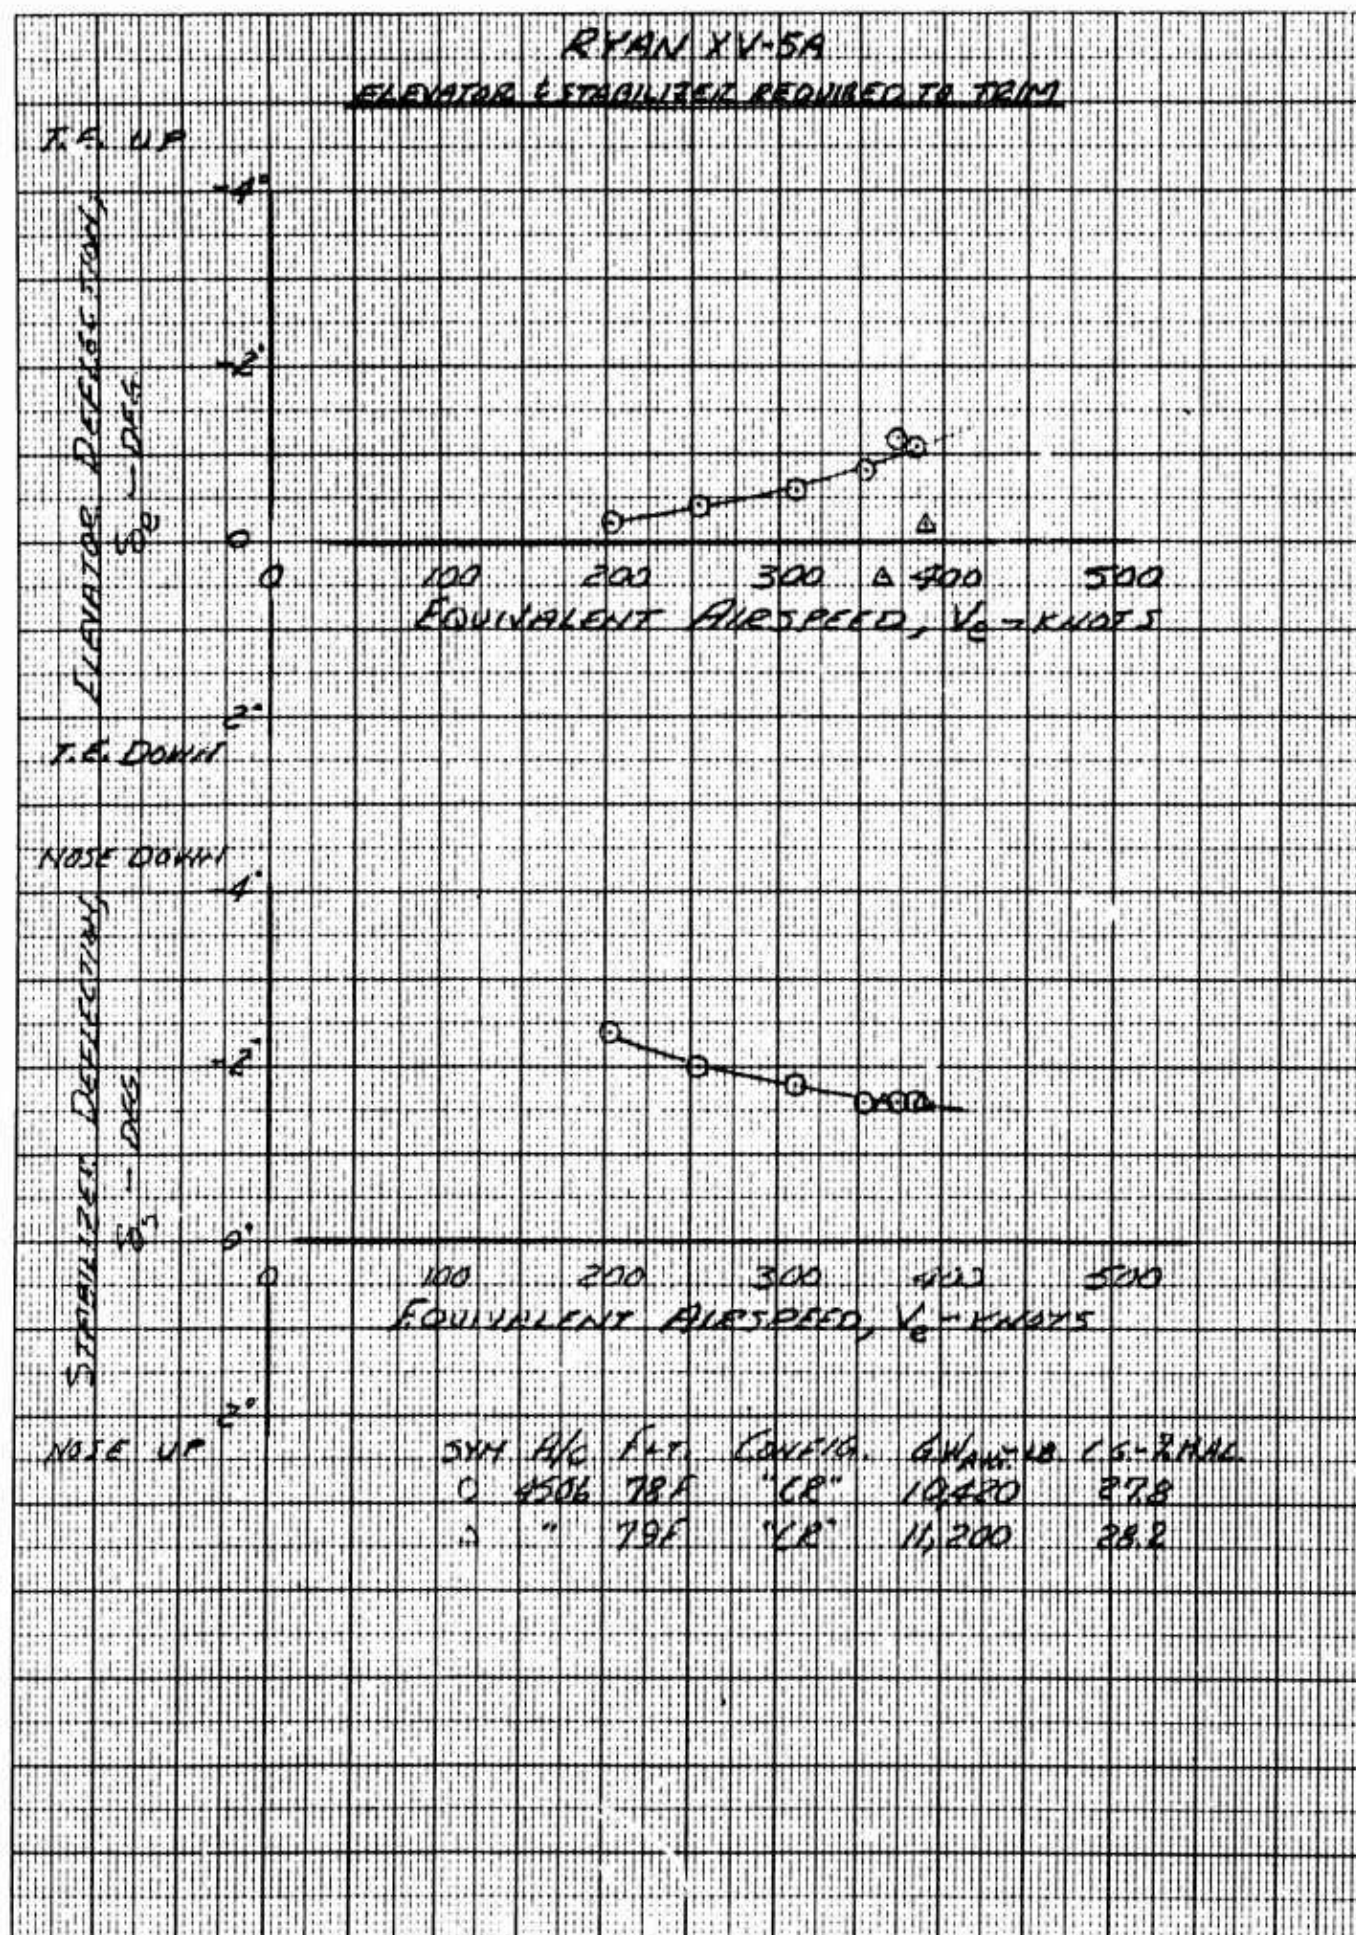 RYAN XV-5A
ELEVATOR & STABILIZER REQUIRED TO TRIM
T.E. UP
-4°
-2°
0
2°
ELEVATOR DEFLECTION,
δe ~ DEG
0 100 200 300 400 500
EQUIVALENT AIRSPEED, Ve ~ KNOTS
T.E. DOWN
NOSE DOWN
-4°
-2°
0°
2°
STABILIZER DEFLECTION,
δs ~ DEG
0 100 200 300 400 500
EQUIVALENT AIRSPEED, Ve ~ KNOTS
NOSE UP
SYM A/C FLT. CONFIG. LB CG-% MAC
4506 78F "CR" 10,420 27.8
" 79F "CR" 11,200 28.2